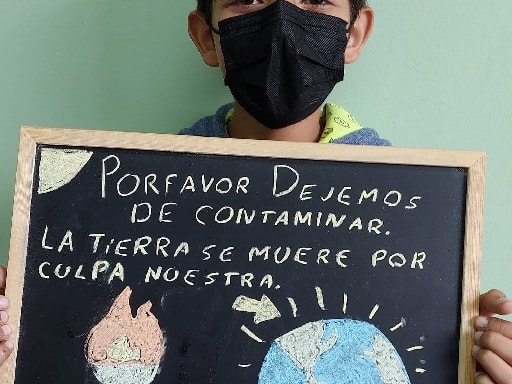 PORFAVOR DEJEMOS
DE CONTAMINAR.
LA TIERRA SE MUERE POR
CULPA NUESTRA.